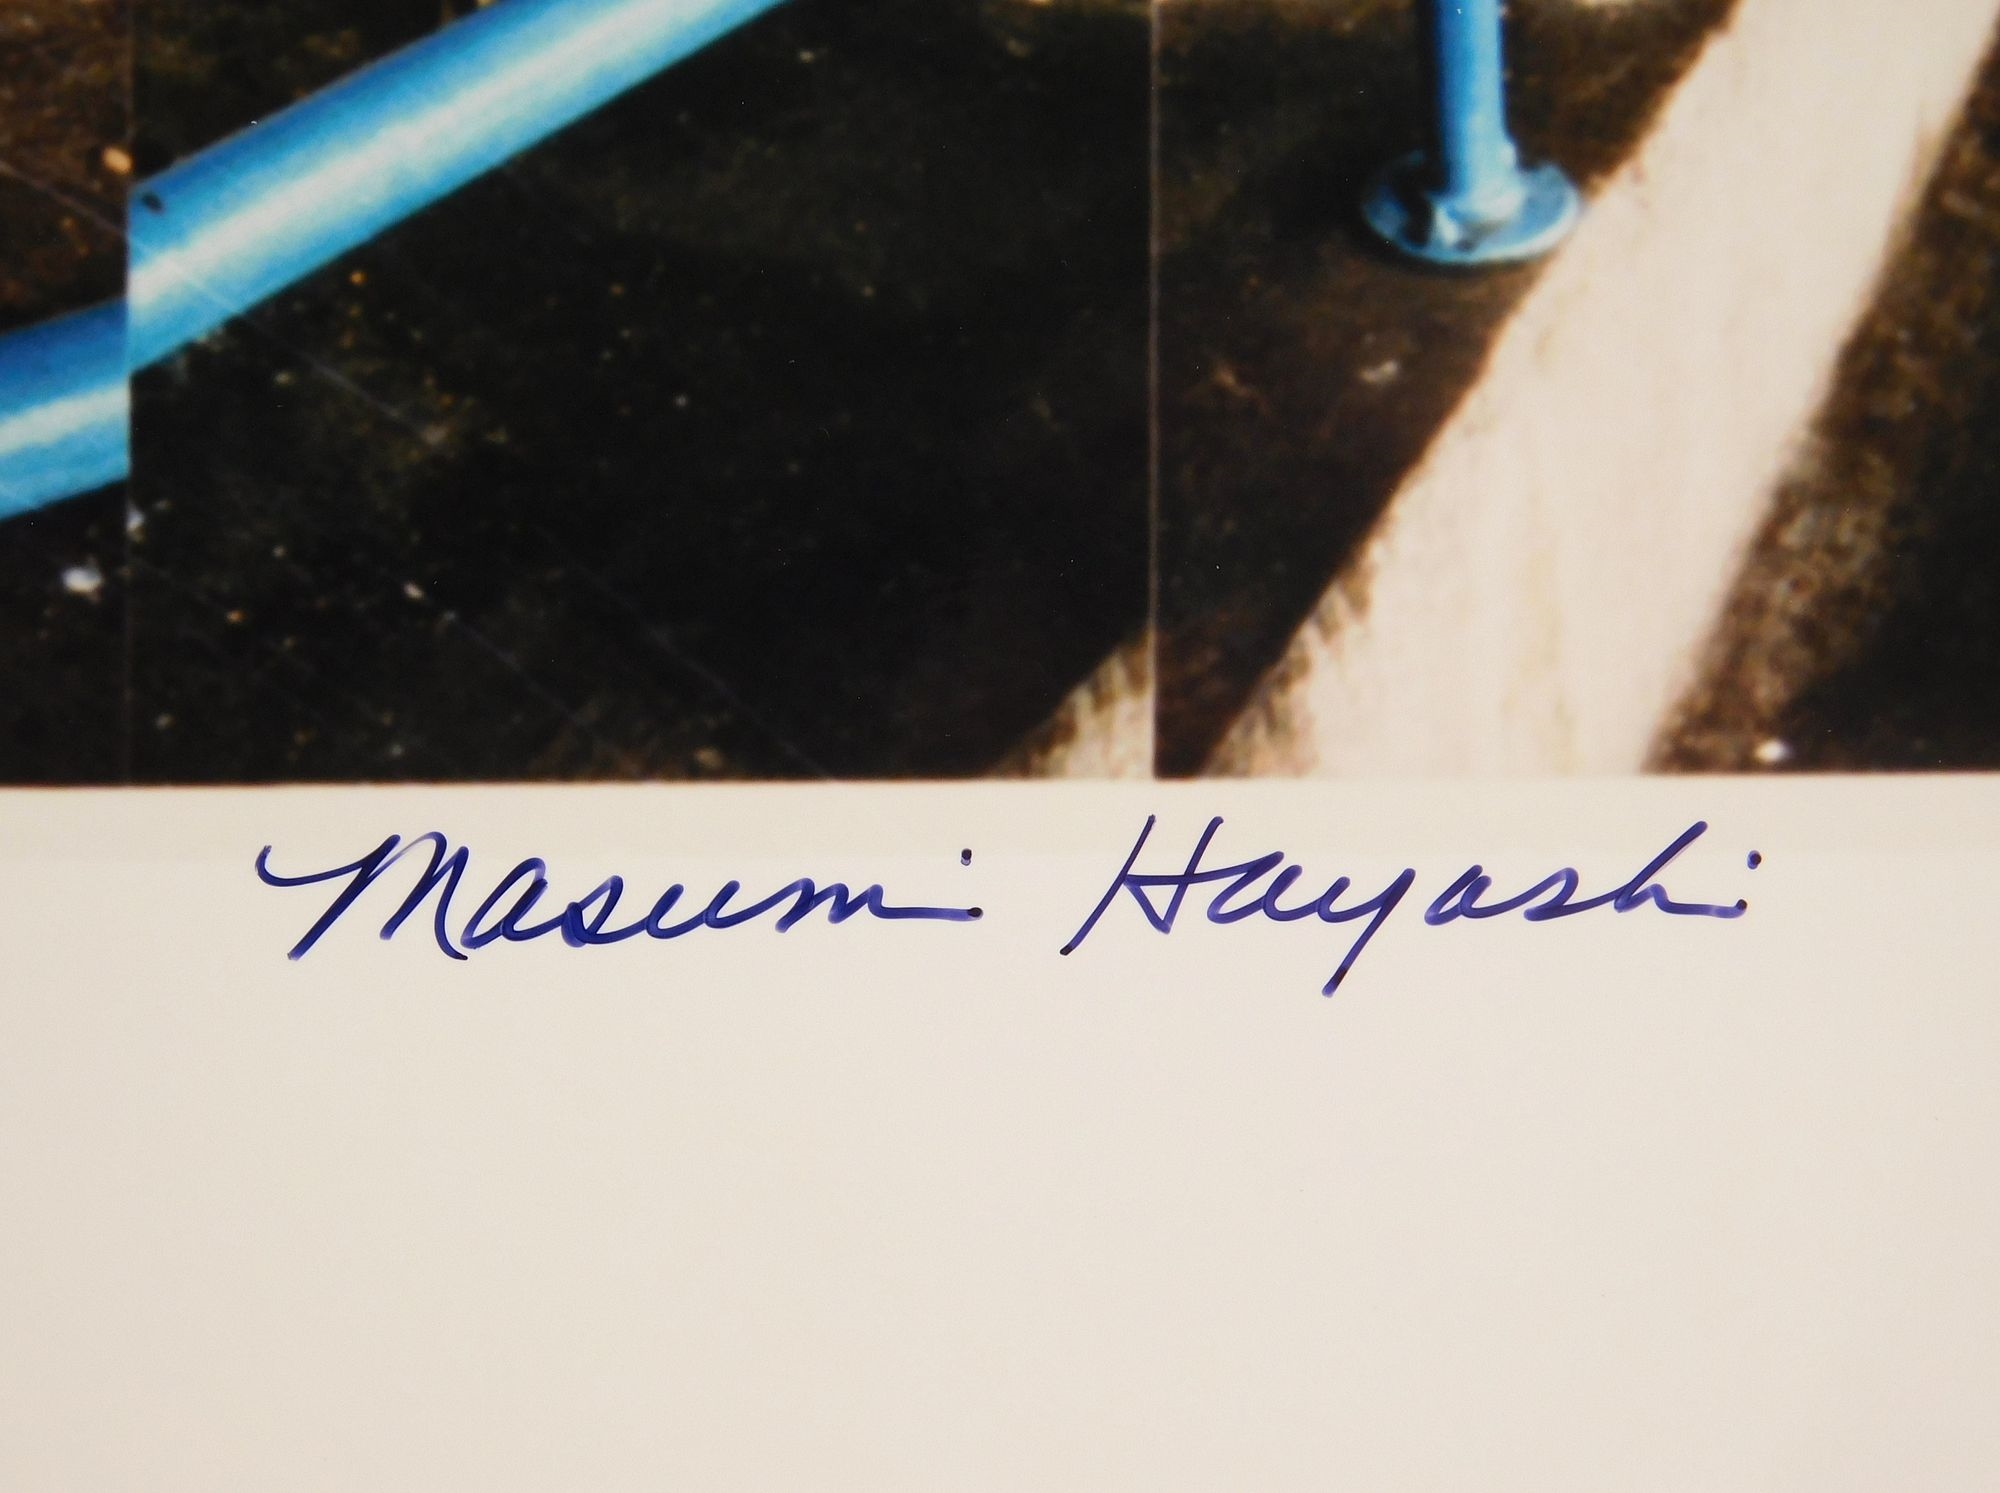 Masumi Hayashi